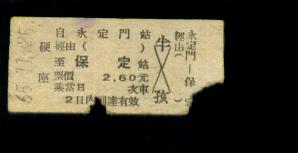 自永定門站
經由( )站
至保定站
硬座 票價 2.60元
乘當日 次車
2日內到達有效
半孩
永定門—保定
經由( )